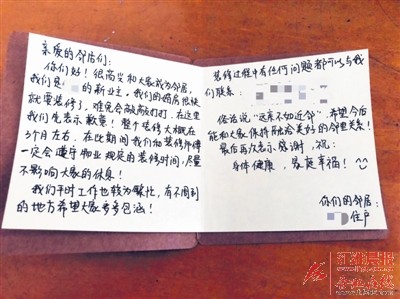 亲爱的邻居们：
你们好！很高兴和大家成为邻居，
我们是 的新业主。我们的婚房很快
就要装修了，难免会敲敲打打，在这里
我们先表示歉意！整个装修大概在
3个月左右，在此期间我们和装修师傅
一定会遵守物业规定的装修时间，尽量
不影响大家的休息！
我们平时工作也较为繁忙，有不周到
的地方希望大家多多包涵！
装修过程中有任何问题都可以与我
们联系：
俗话说“远亲不如近邻”，希望今后
能和大家保持融洽美好的邻里关系！
最后再次表示感谢，祝：
身体健康，家庭幸福！
你们的邻居：
住户